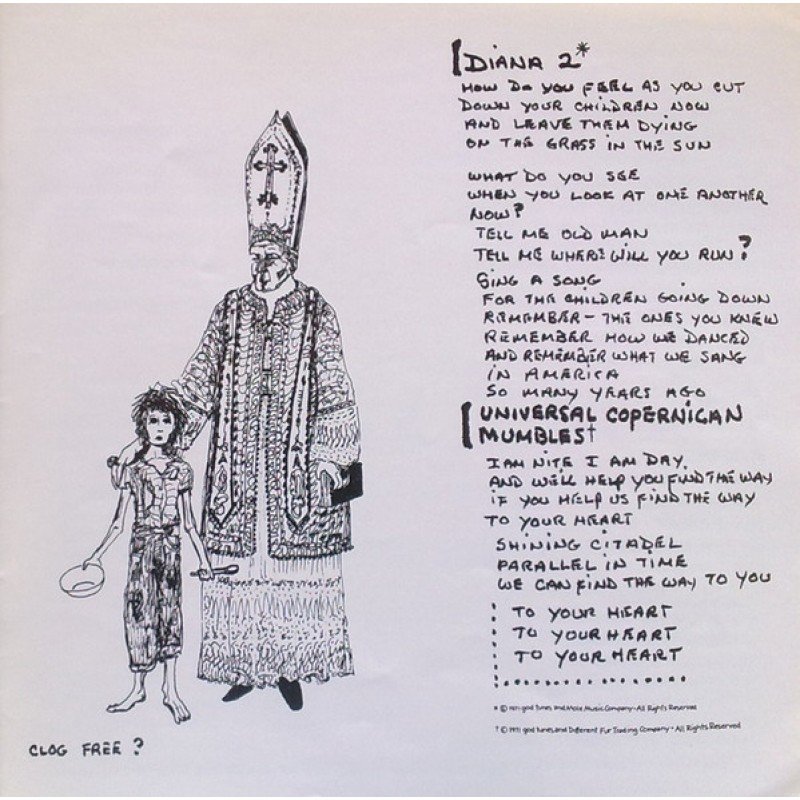 DIANA 2*
HOW DO YOU FEEL AS YOU CUT
DOWN YOUR CHILDREN NOW
AND LEAVE THEM DYING
ON THE GRASS IN THE SUN
WHAT DO YOU SEE
WHEN YOU LOOK AT ONE ANOTHER
NOW?
TELL ME OLD MAN
TELL ME WHERE WILL YOU RUN?
SING A SONG
FOR THE CHILDREN GOING DOWN
REMEMBER - THE ONES YOU KNEW
REMEMBER HOW WE DANCED
AND REMEMBER WHAT WE SANG
IN AMERICA
SO MANY YEARS AGO
UNIVERSAL COPERNICAN
MUMBLES†
I AM NITE I AM DAY,
AND WE'LL HELP YOU FIND THE WAY
IF YOU HELP US FIND THE WAY
TO YOUR HEART
SHINING CITADEL
PARALLEL IN TIME
WE CAN FIND THE WAY TO YOU
TO YOUR HEART
TO YOUR HEART
TO YOUR HEART
* © 1971 god Tunes and Mole Music Company - All Rights Reserved
† © 1971 god tunes and Different Fur Trading Company - All Rights Reserved
CLOG FREE?